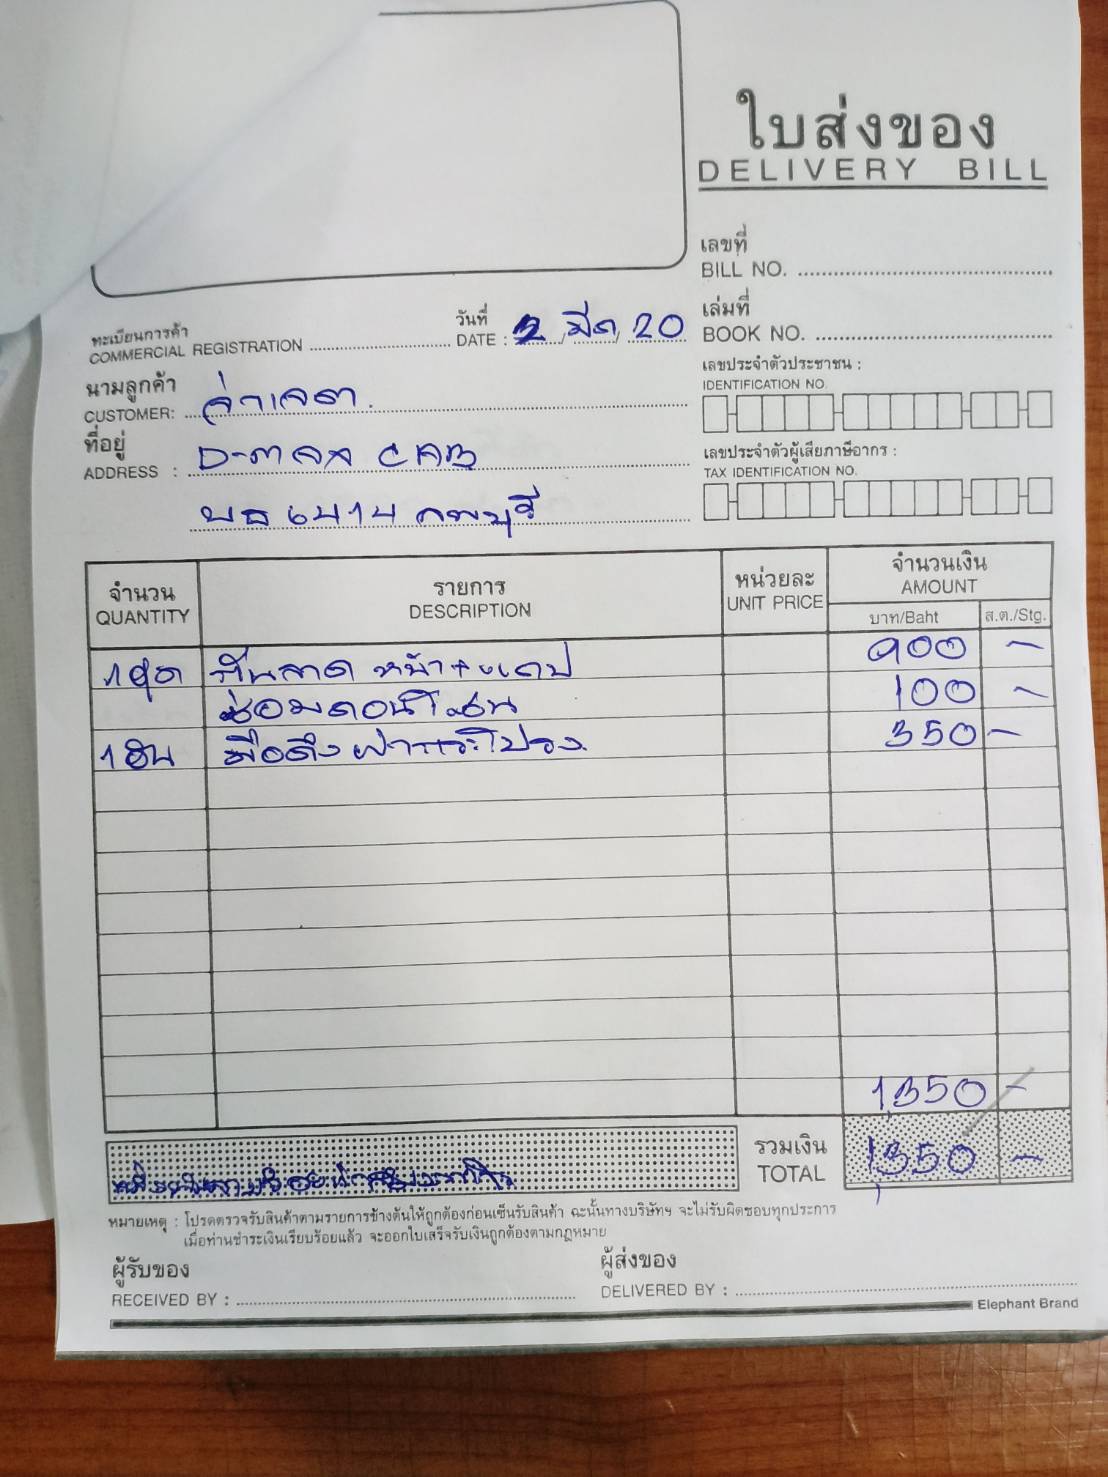 ใบส่งของ
DELIVERY BILL
เลขที่
BILL NO.
เล่มที่
BOOK NO.
ทะเบียนการค้า
COMMERCIAL REGISTRATION
วันที่
DATE : 2 / มีค / 20
เลขประจำตัวประชาชน :
IDENTIFICATION NO.
นามลูกค้า
CUSTOMER: จ่าเจตา
ที่อยู่
ADDRESS : D-MAX CAB
เลขประจำตัวผู้เสียภาษีอากร :
TAX IDENTIFICATION NO.
บธ 6414 ลพบุรี
จำนวน
QUANTITY
รายการ
DESCRIPTION
หน่วยละ
UNIT PRICE
จำนวนเงิน
AMOUNT
บาท/Baht
ส.ต./Stg.
1 ชุด กันสาด หน้า + แคป 900 -
ซ่อมคอนโซน 100 -
1 อัน มือดึงฝากระโปรง 350 -
1350 -
รวมเงิน
TOTAL
1350 -
หมายเหตุ : โปรดตรวจรับสินค้าตามรายการข้างต้นให้ถูกต้องก่อนเซ็นรับสินค้า ฉะนั้นทางบริษัทฯ จะไม่รับผิดชอบทุกประการ
เมื่อท่านชำระเงินเรียบร้อยแล้ว จะออกใบเสร็จรับเงินถูกต้องตามกฎหมาย
ผู้รับของ
RECEIVED BY :
ผู้ส่งของ
DELIVERED BY :
Elephant Brand